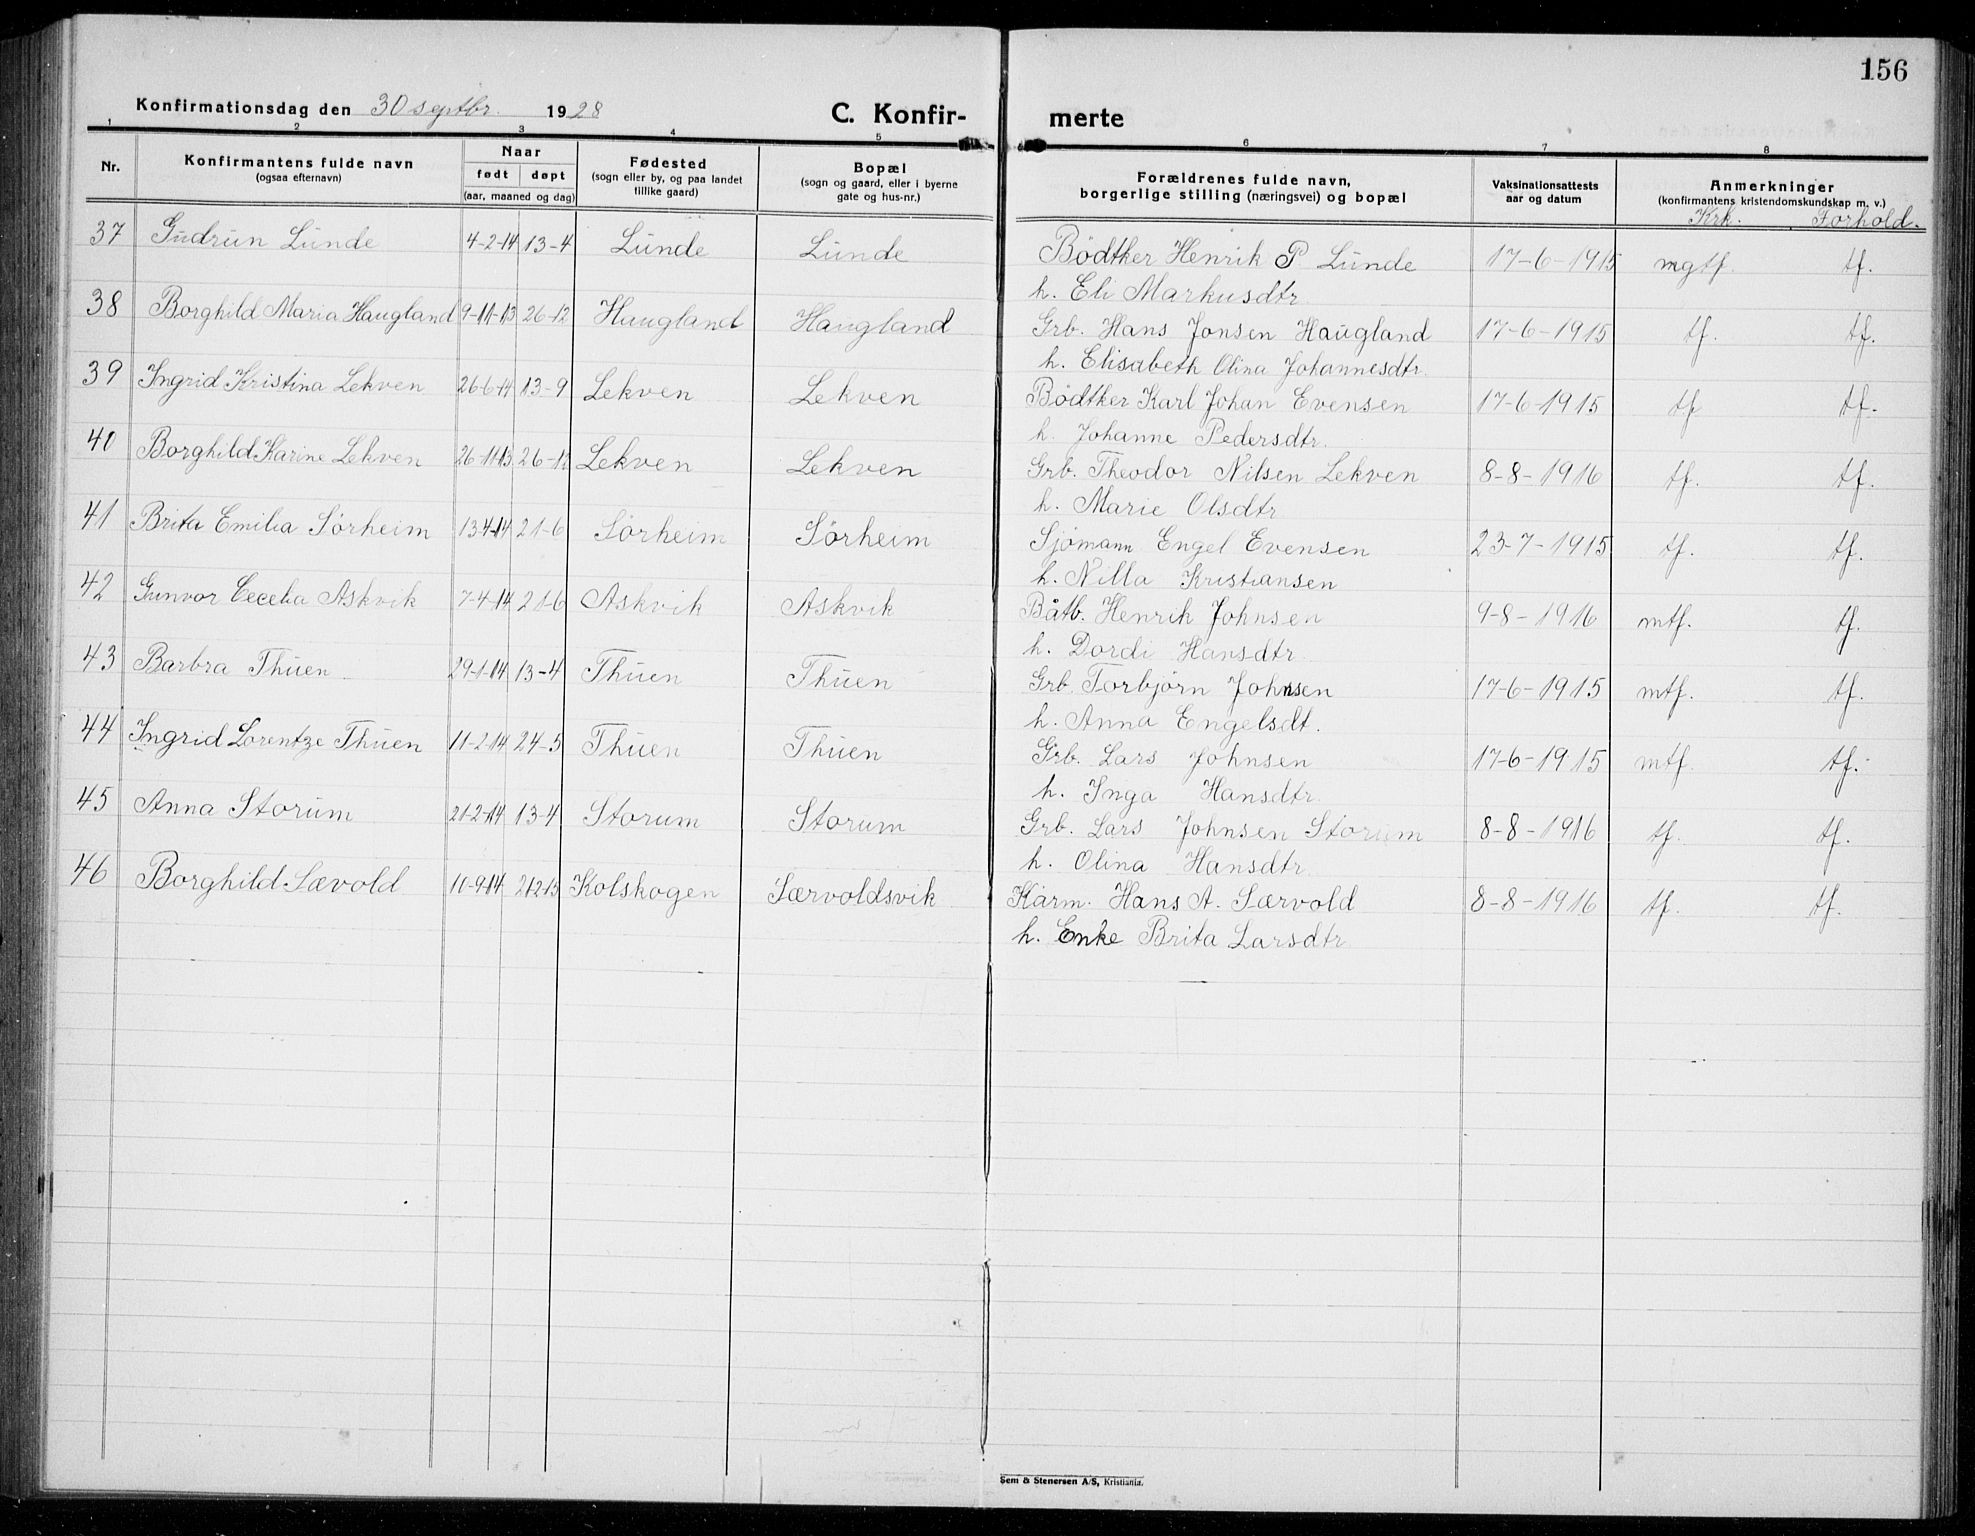 156
Konfirmationsdag den 30 septbr. 1928
C. Konfir- merte
1 2 3 4 5 6 7 8
Nr.
Konfirmantens fulde navn
(ogsaa efternavn)
Naar
født døpt
(aar, maaned og dag)
Fødested
(sogn eller by, og paa landet
tillike gaard)
Bopæl
(sogn og gaard, eller i byerne
gate og hus-nr.)
Forældrenes fulde navn,
borgerlige stilling (næringsvei) og bopæl
Vaksinationsattests
aar og datum
Anmerkninger
(konfirmantens kristendomskundskap m. v.)
Krk. Forhold.
37 Gudrun Lunde 4-2-14 13-4 Lunde Lunde Bödtker Henrik P Lunde 17-6-1915 mgtf. tf.
h. Eli Markusdtr.
38 Borghild Maria Haugland 9-11-13 26-12 Haugland Haugland Grb. Hans Jonsen Haugland 17-6-1915 tf. tf.
h. Elisabeth Olina Johannesdtr.
39 Ingrid Kristina Lekven 26-6-14 13-9 Lekven Lekven Bödtker Karl Johan Evensen 17-6-1915 tf tf.
h. Johanne Pedersdtr.
40 Borghild Karine Lekven 26-11-13 26-12 Lekven Lekven Grb. Theodor Nilsen Lekven 8-8-1916 tf. tf.
h. Marie Olsdtr
41 Brita Emilia Sørheim 13-4-14 21-6 Sørheim Sørheim Sjømann Engel Evensen 23-7-1915 tf. tf.
h. Nilla Kristiansen
42 Gunvor Cecelia Askvik 7-4-14 21-6 Askvik Askvik Båtb. Henrik Johnsen 9-8-1916 mtf. tf.
h. Dordi Hansdtr.
43 Barbra Thuen 29-1-14 13-4 Thuen Thuen Grb. Torbjørn Johnsen 17-6-1915 mtf. tf.
h. Anna Engelsdt.
44 Ingrid Lorentze Thuen 11-2-14 24-5 Thuen Thuen Grb. Lars Johnsen 17-6-1915 mtf. tf.
h. Inga Hansdtr.
45 Anna Storum 21-2-14 13-4 Storum Storum Grb. Lars Johnsen Storum 8-8-1916 tf. tf.
h. Olina Hansdtr.
46 Borghild Sævold 11-9-14 21-2-15 Kolskogen Særvoldsvik Kårm. Hans A. Særvold 8-8-1916 tf. tf.
h. Enke Brita Larsdtr
Sem & Stenersen A/S, Kristiania.